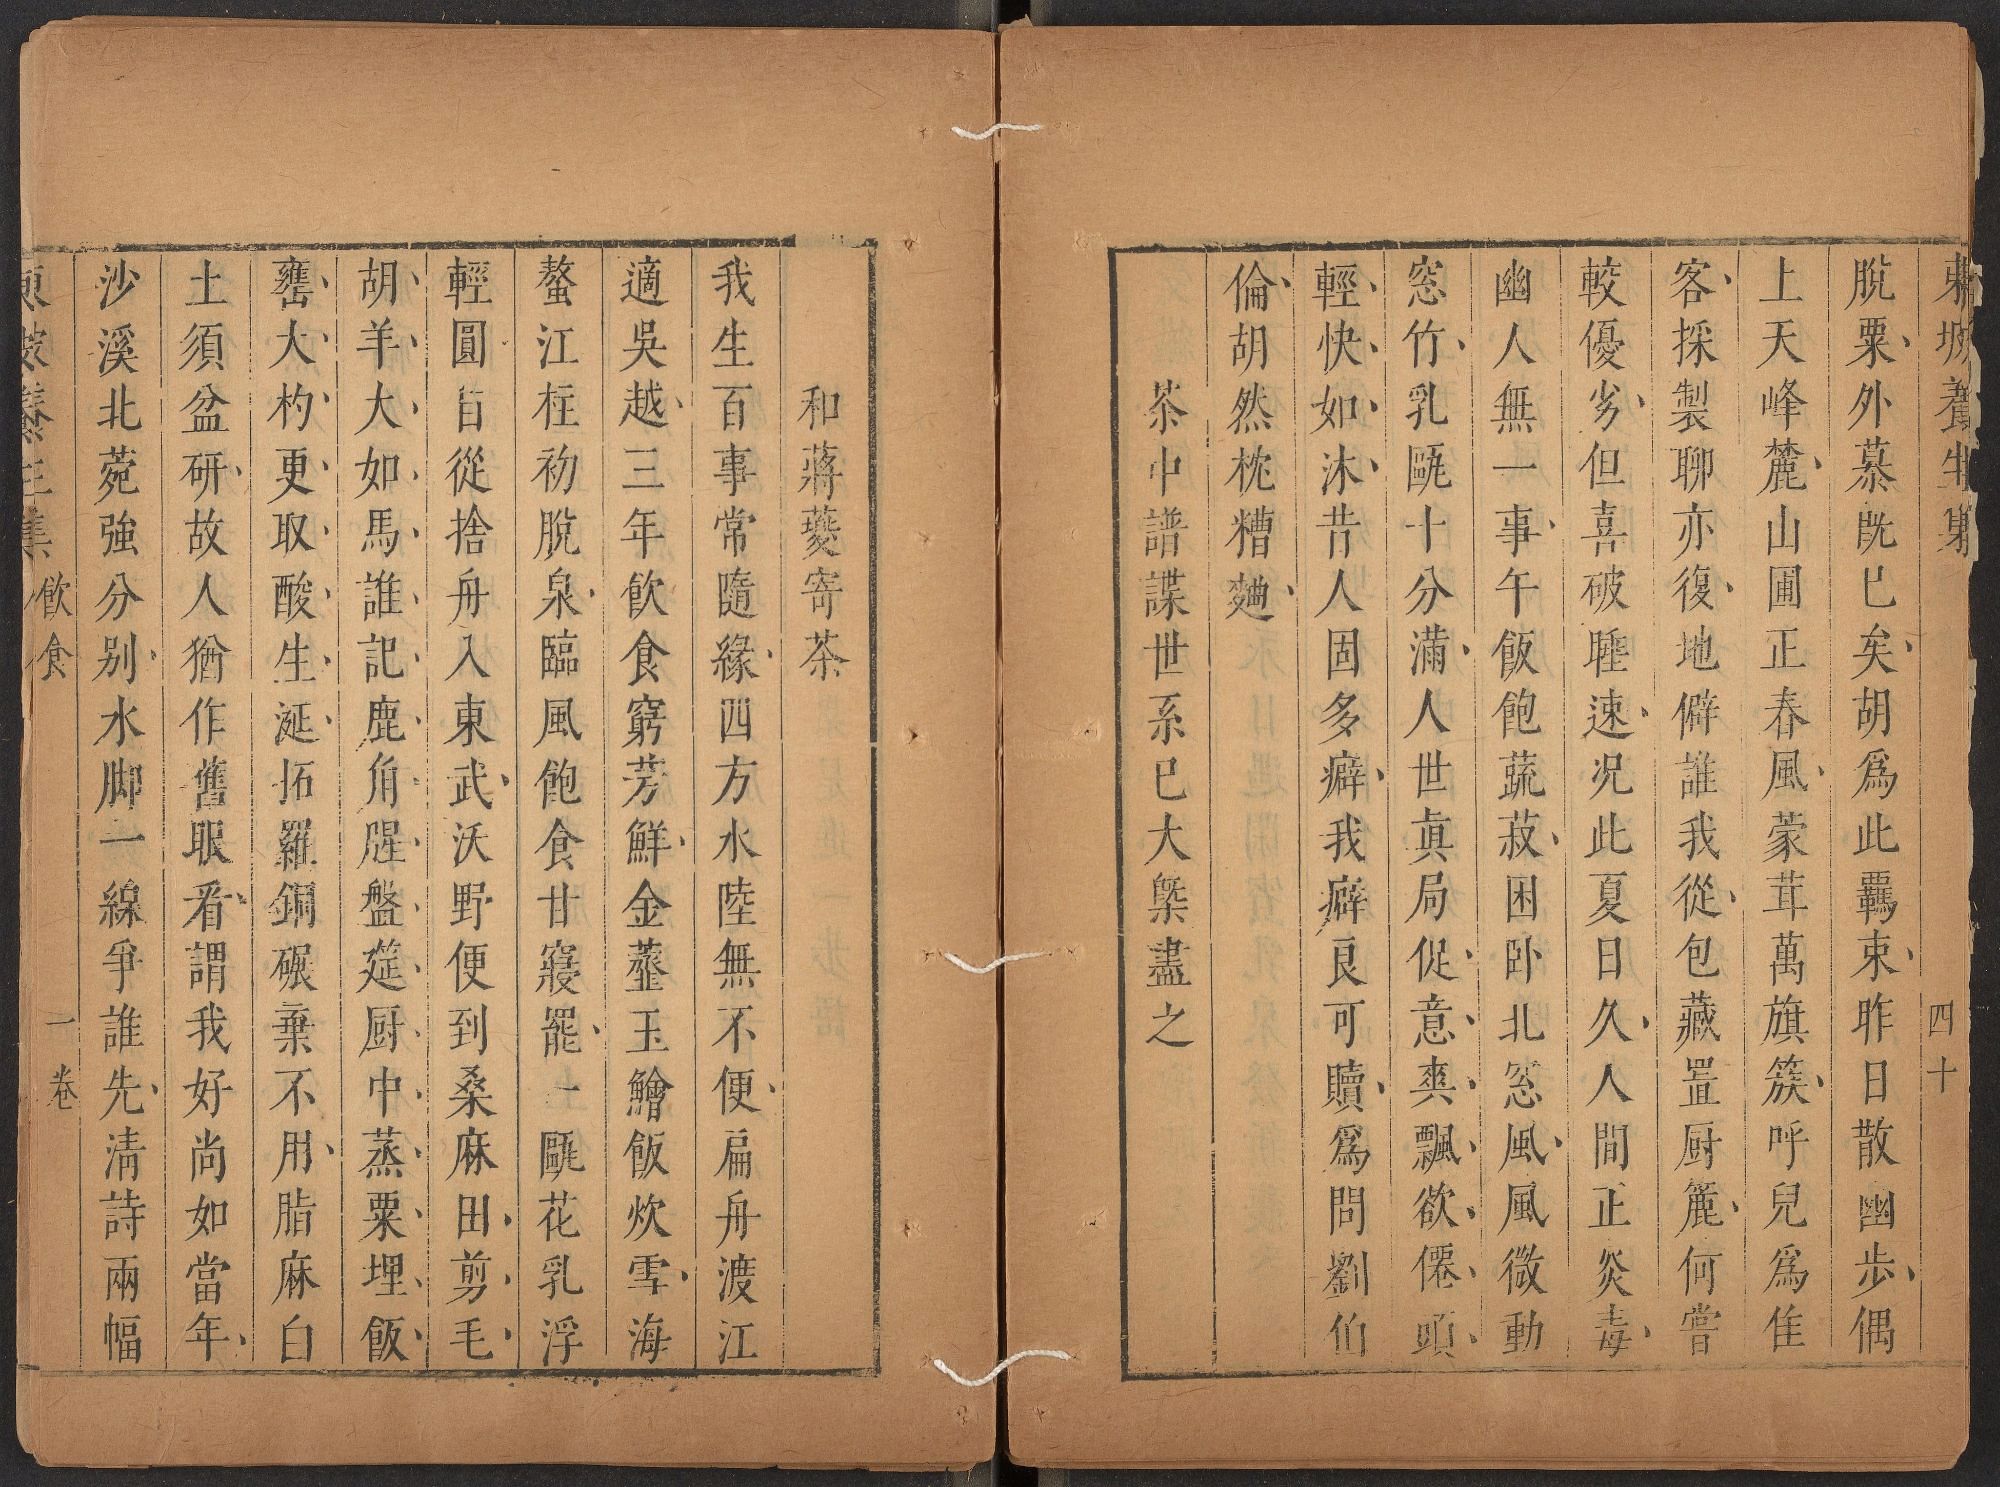 東坡養生集
四十
脫粟外慕既已矣胡爲此羈束昨日散幽步偶
上天峰麓山圃正春風蒙茸萬旗簇呼兒爲佳
客採製聊亦復地僻誰我從包藏置厨簏何嘗
較優劣但喜破睡速况此夏日久人間正炎毒
幽人無一事午飯飽蔬菽困卧北窓風風微動
窓竹乳甌十分滿人世眞局促意爽飄欲僊頭
輕快如沐昔人固多癖我癖良可贖爲問劉伯
倫胡然枕糟麯
茶中譜諜世系已大槩盡之
和蔣夔寄茶
我生百事常隨緣四方水陸無不便扁舟渡江
適吳越三年飮食窮芳鮮金虀玉鱠飯炊雪海
螯江柱初脫泉臨風飽食甘寢罷一甌花乳浮
輕圓自從捨舟入東武沃野便到桑麻田剪毛
胡羊大如馬誰記鹿角腥盤筵厨中蒸粟埋飯
甕大杓更取酸生涎拓羅銅碾棄不用脂麻白
土須盆研故人猶作舊眼看謂我好尚如當年
沙溪北菀強分别水脚一線爭誰先淸詩兩幅
東坡養生集
飮食
一卷